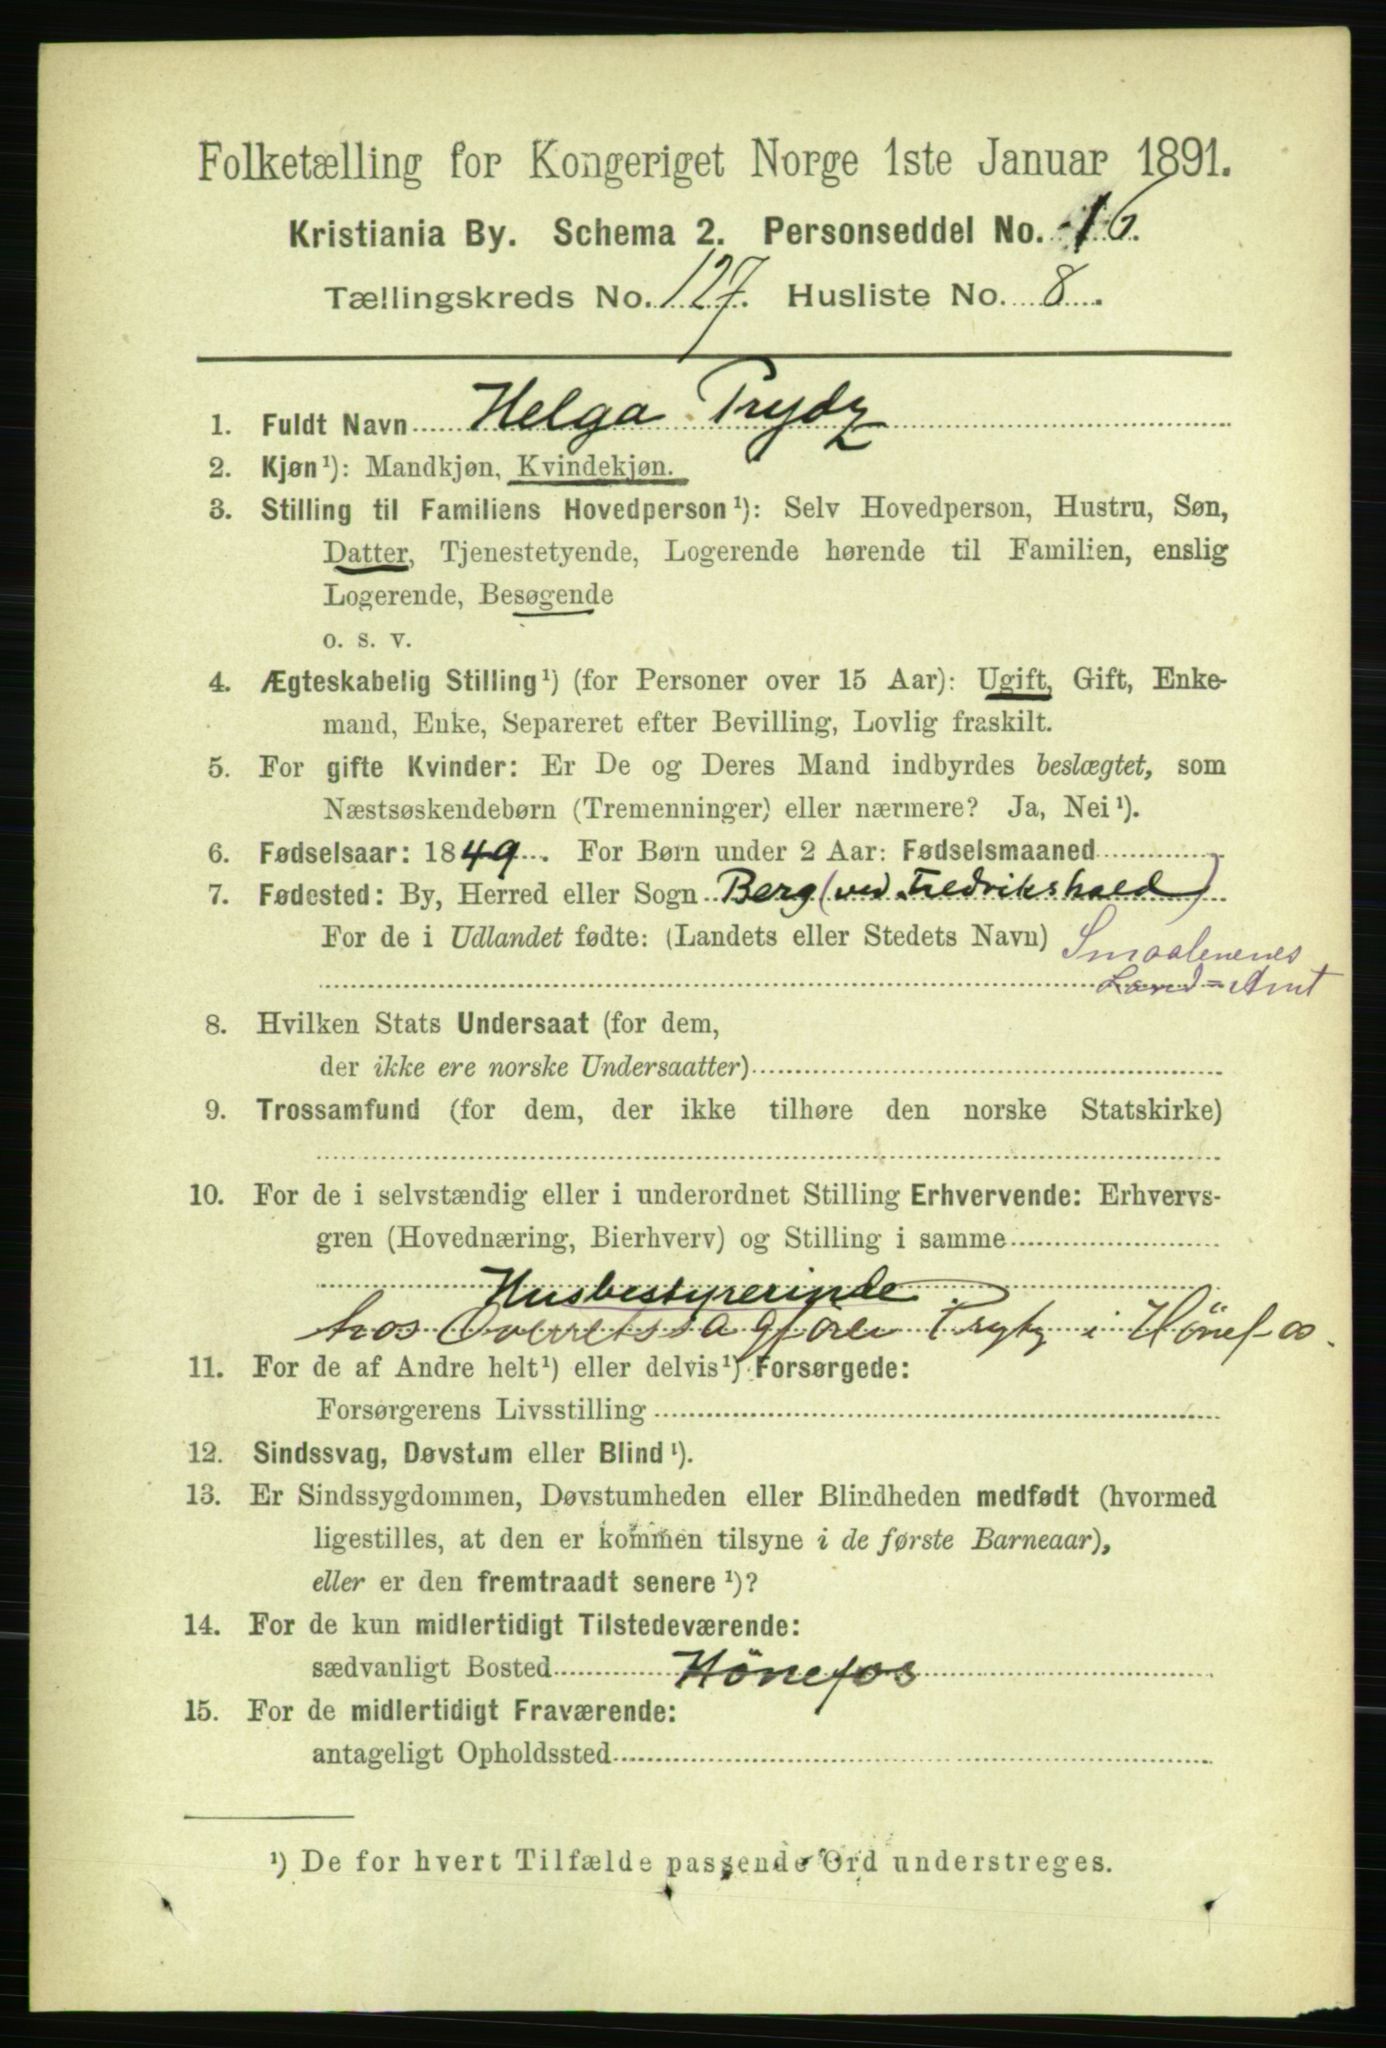 Folketælling for Kongeriget Norge 1ste Januar 1891.
Kristiania By. Schema 2. Personseddel No. 16.
Tællingskreds No. 127. Husliste No. 8.
1. Fuldt Navn Helga Prydz
2. Kjøn¹): Mandkjøn, Kvindekjøn.
3. Stilling til Familiens Hovedperson¹): Selv Hovedperson, Hustru, Søn,
Datter, Tjenestetyende, Logerende hørende til Familien, enslig
Logerende, Besøgende
o. s. v.
4. Ægteskabelig Stilling¹) (for Personer over 15 Aar): Ugift, Gift, Enke-
mand, Enke, Separeret efter Bevilling, Lovlig fraskilt.
5. For gifte Kvinder: Er De og Deres Mand indbyrdes beslægtet, som
Næstsøskendebørn (Tremenninger) eller nærmere? Ja, Nei¹).
6. Fødselsaar: 1849. For Børn under 2 Aar: Fødselsmaaned
7. Fødested: By, Herred eller Sogn Berg (ved Fredrikshald)
For de i Udlandet fødte: (Landets eller Stedets Navn) Smaalenenes
Land=Amt
8. Hvilken Stats Undersaat (for dem,
der ikke ere norske Undersaatter)
9. Trossamfund (for dem, der ikke tilhøre den norske Statskirke)
10. For de i selvstændig eller i underordnet Stilling Erhvervende: Erhvervs-
gren (Hovednæring, Bierhverv) og Stilling i samme
Husbestyrerinde
hos Overretssagfører Prytz i Hönefos.
11. For de af Andre helt¹) eller delvis¹) Forsørgede:
Forsørgerens Livsstilling
12. Sindssvag, Døvstum eller Blind¹).
13. Er Sindssygdommen, Døvstumheden eller Blindheden medfødt (hvormed
ligestilles, at den er kommen tilsyne i de første Barneaar),
eller er den fremtraadt senere¹)?
14. For de kun midlertidigt Tilstedeværende:
sædvanligt Bosted Hönefos
15. For de midlertidigt Fraværende:
antageligt Opholdssted
¹) De for hvert Tilfælde passende Ord understreges.